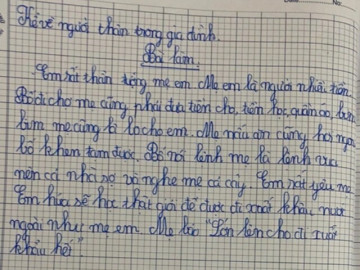 Kể về người thân trong gia đình.
Bài làm.
Em rất thần tượng mẹ em. Mẹ em là người nhiều tiền.
Bố đi chợ mẹ cũng phải đưa tiền cho, tiền học, quần áo,
bim mẹ cũng bỏ lo cho em. Mẹ nấu ăn cũng hơi ngon
bố khen tạm được. Bố nói lệnh mẹ là lệnh vua
nên cả nhà sợ và nghe mẹ cả cây. Em rất yêu mẹ
Em hứa sẽ học thật giỏi để được đi xuất khẩu nước
ngoài như mẹ em. Mẹ bảo "Lớn lên cho đi xuất
khẩu hết"